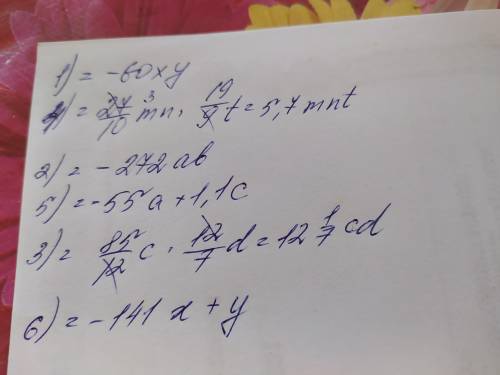 1) = -60xy
4) = 27/10 mn · 19/9 t = 5,7mnt
3
2) = -272ab
5) = -55a + 1,1c
3) = 85/12 c · 12/7 d = 12 1/7 cd
6) = -141x + y